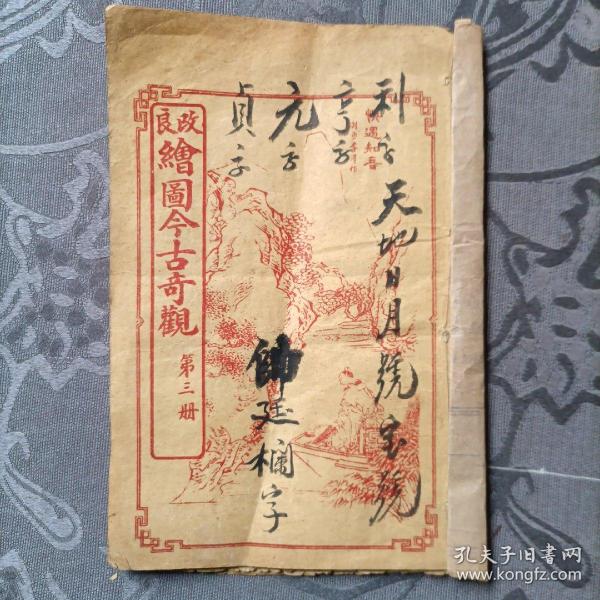 利字
亨字
元字
貞字
天地日月號宝號
廷欄字
快遇知音
改良
繪圖今古奇觀
第三册
孔夫子旧书网
www.kongfz.com